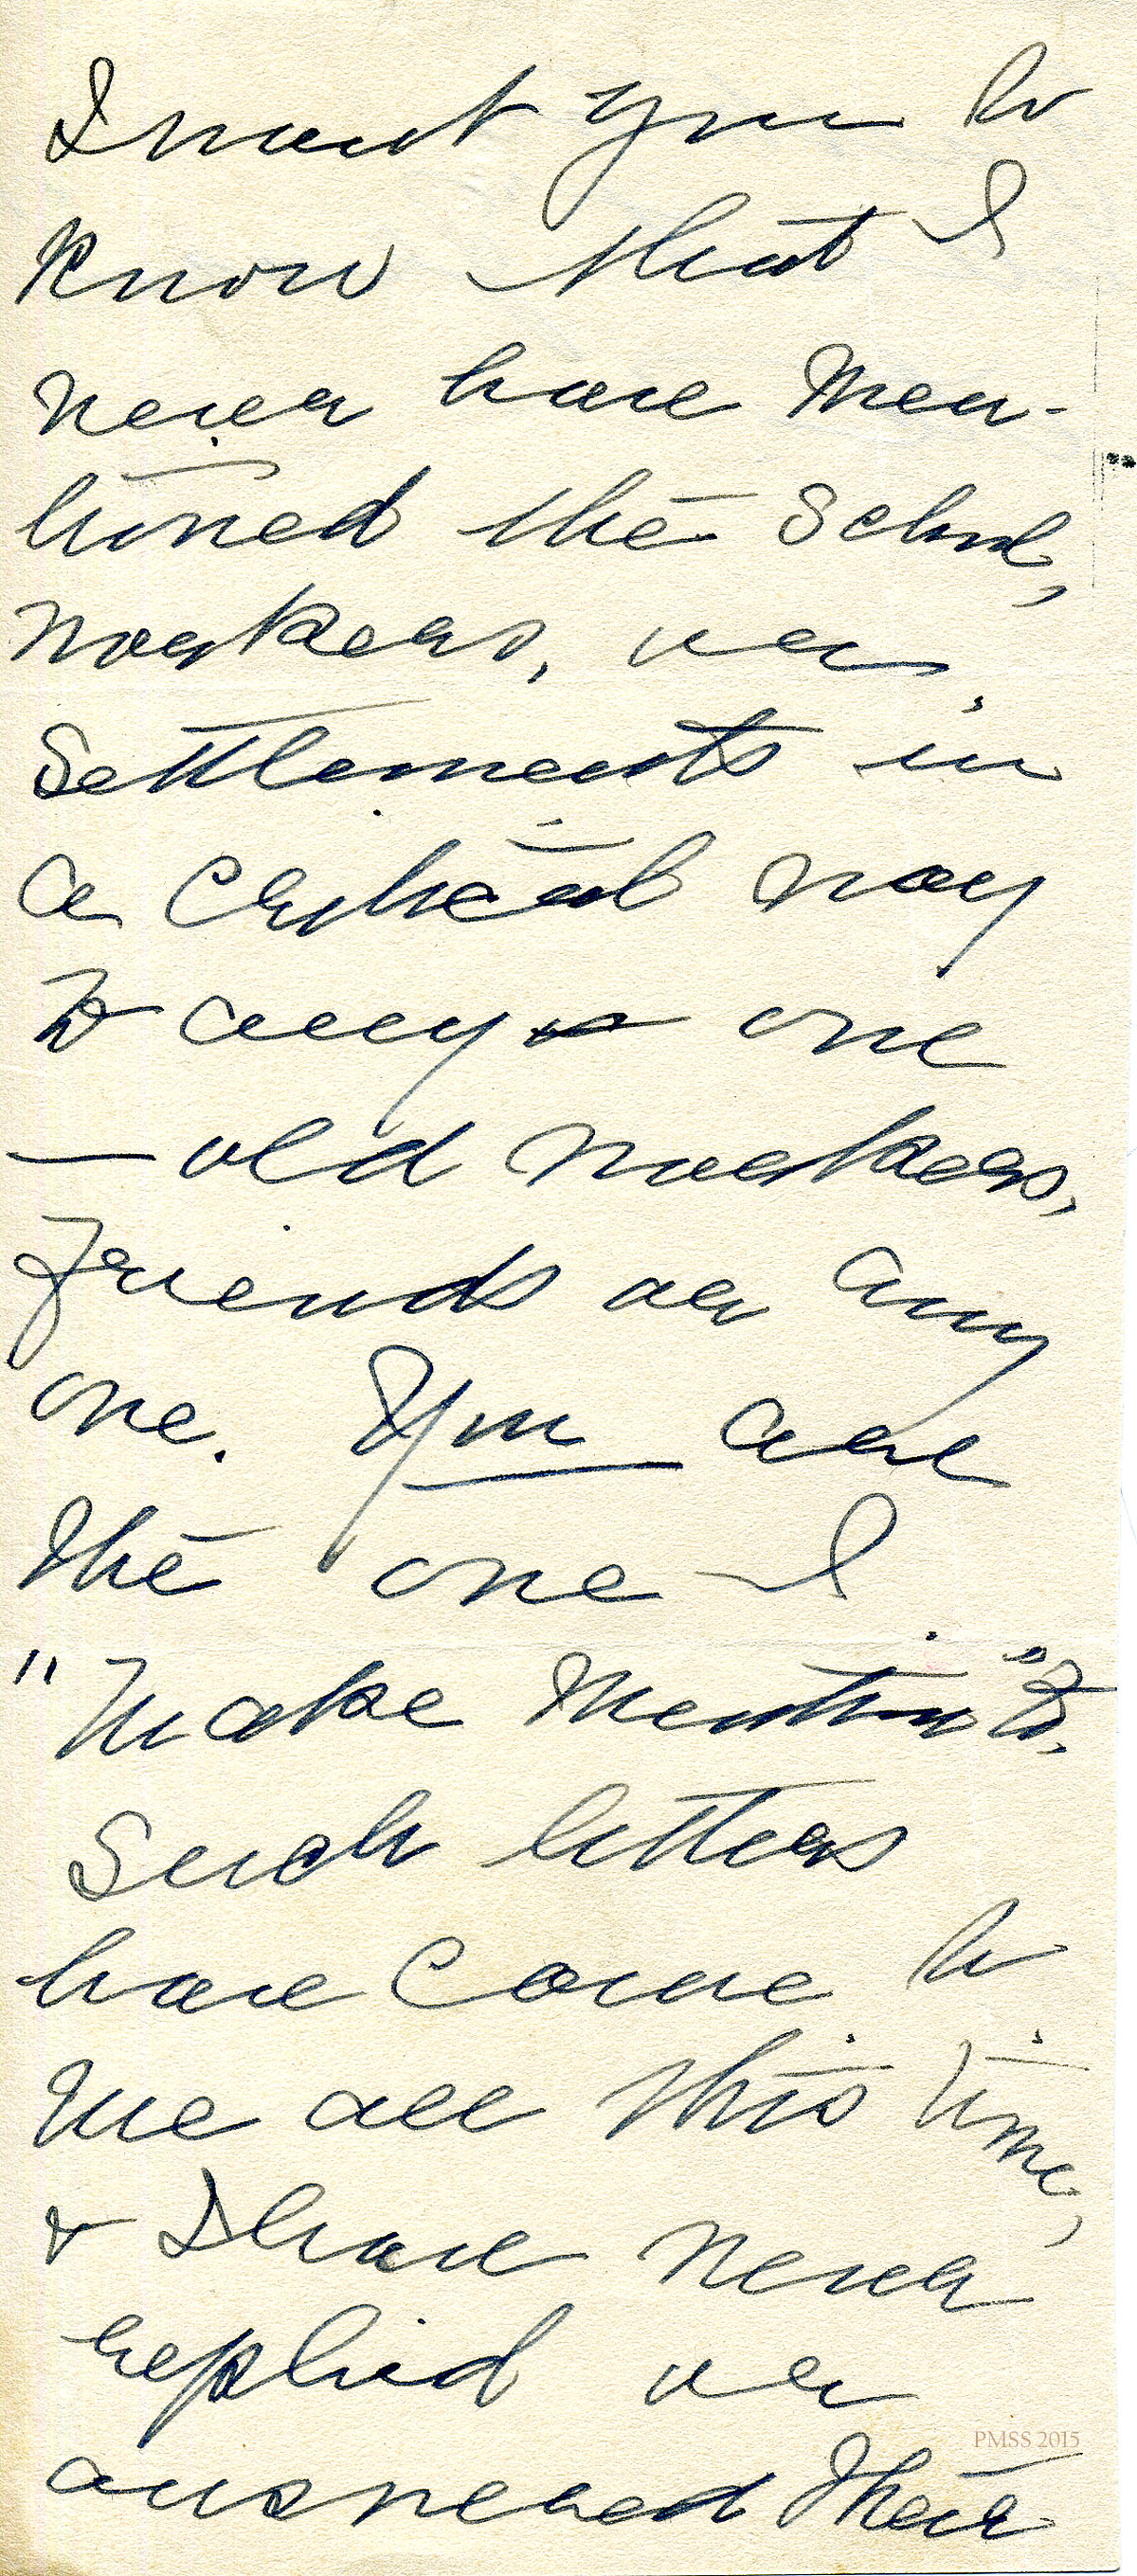 I want you to
know that I
never have men-
tioned the School,
workers, or
Settlements in
a critical way
to any one
— old workers,
friends or any
one. You are
the one I
"make mention" to.
Such letters
have come to
me all this time,
& I have never
replied or
answered their
PMSS 2015